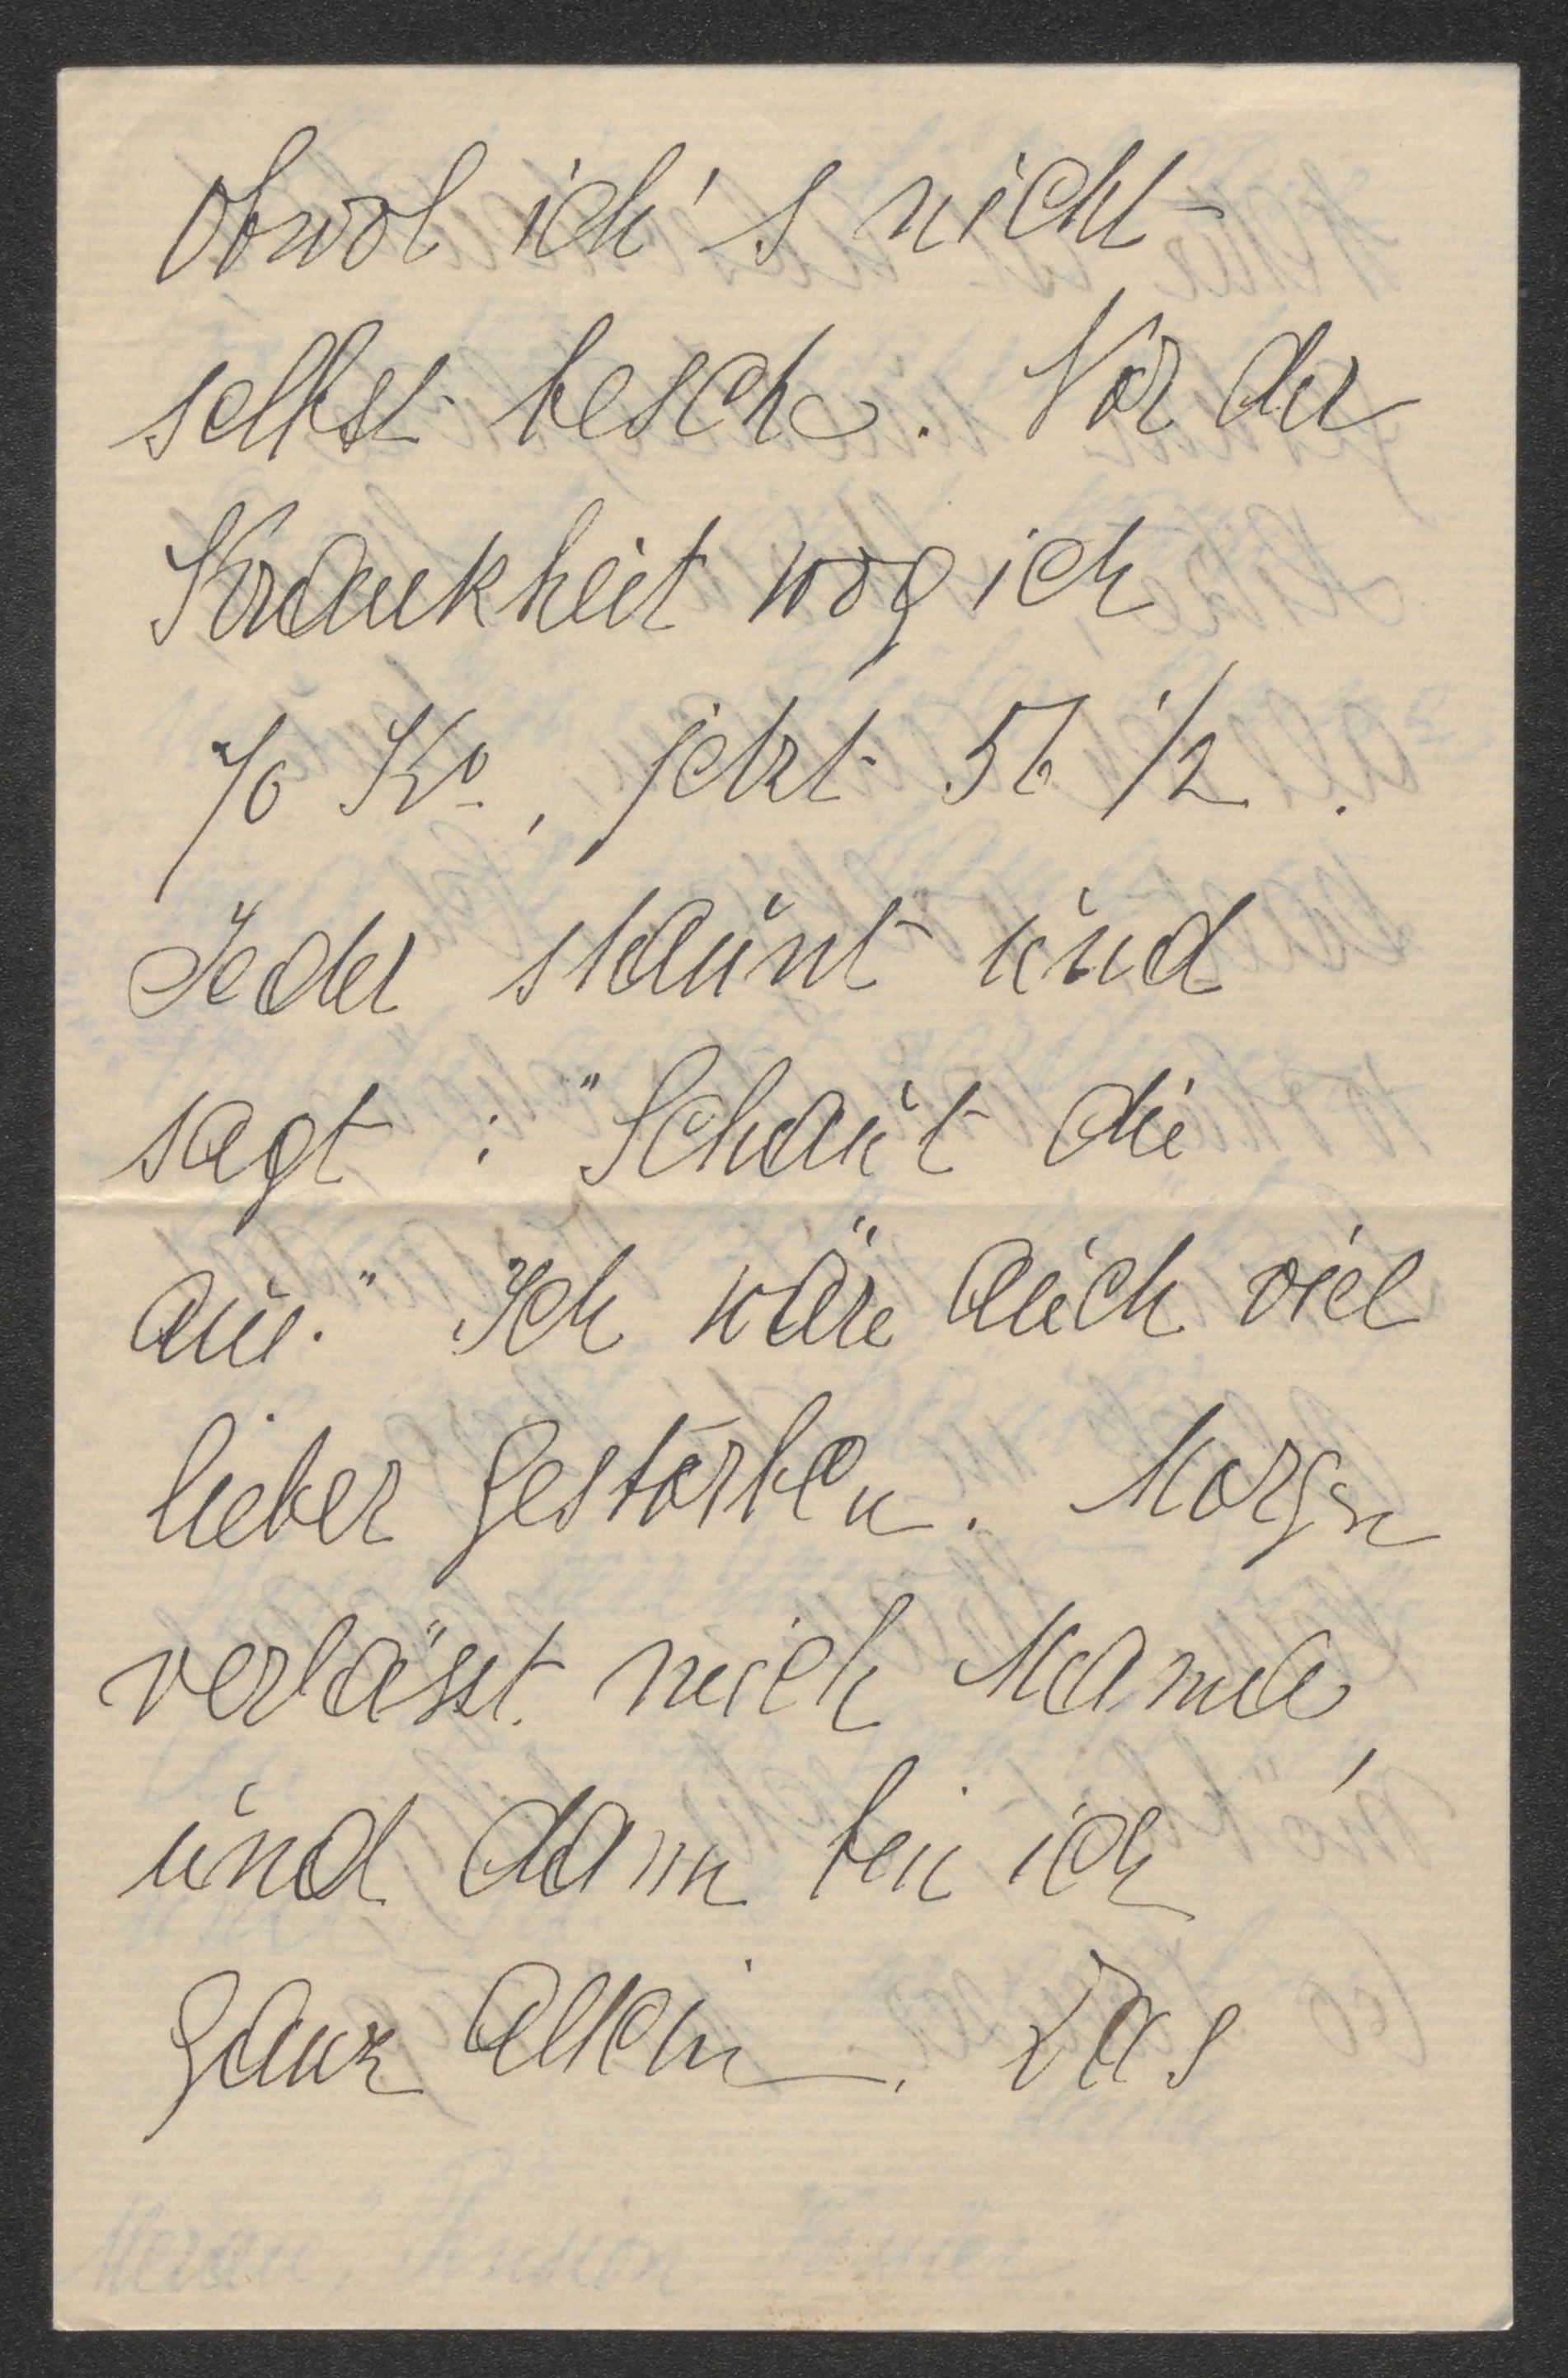 obwol ich's nicht
selbst besche. Vor der
Krankheit wog ich
70 Ko, jetzt 56 1/2.
Jeder staunt und
sagt: "Schaut die
aus." Ich wäre auch viel
lieber gestorben. Morgen
verlässt mich Mama,
und dann bin ich
ganz allein. Das